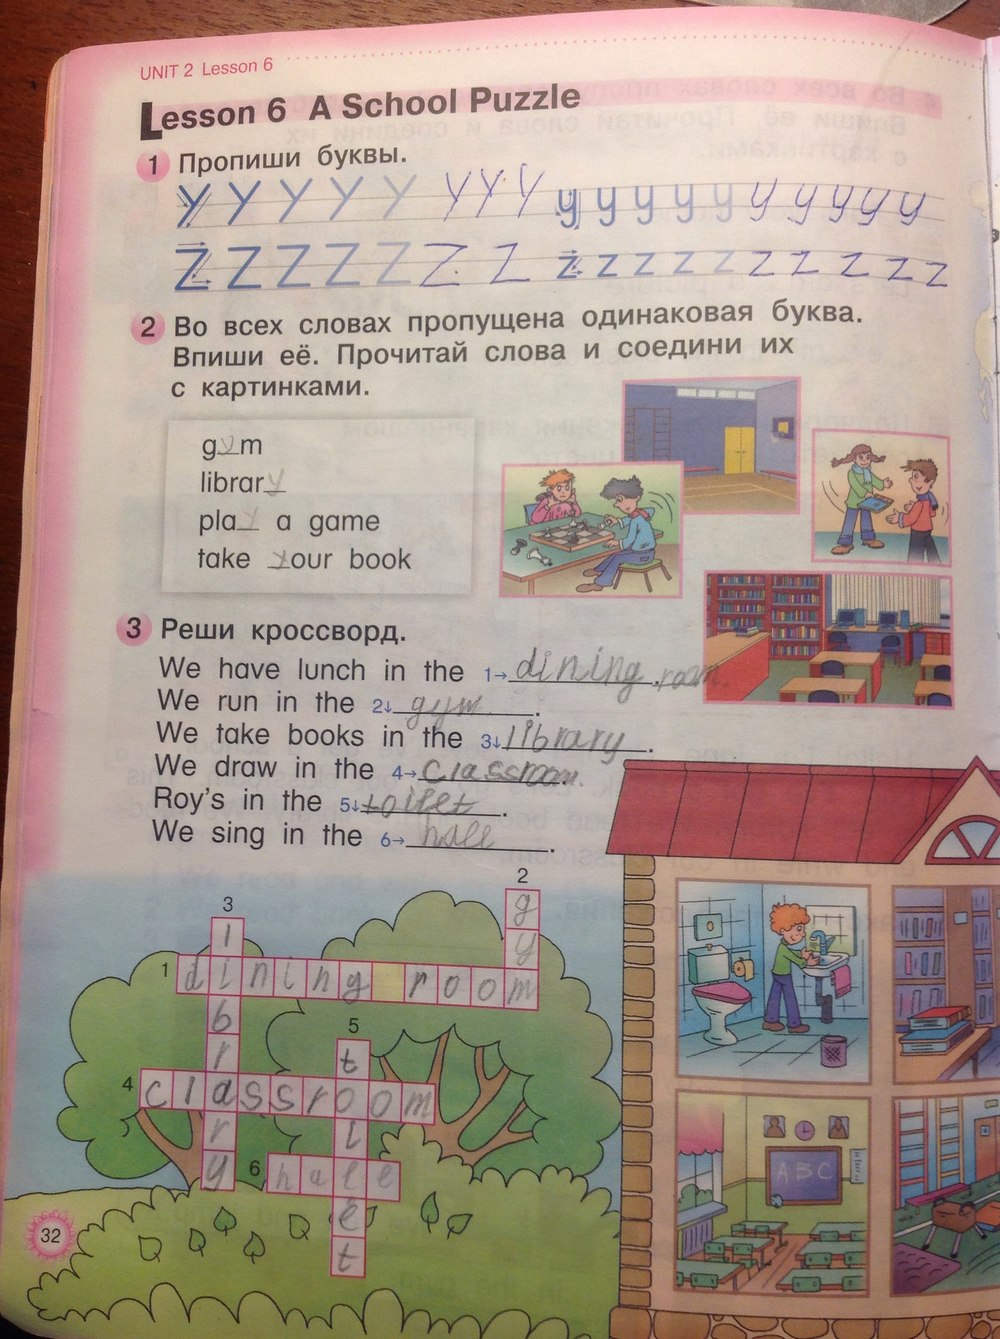 UNIT 2 Lesson 6
Lesson 6 A School Puzzle
1 Пропиши буквы.
Y Y Y Y Y Y Y Y y y y y y y y y y y
Z Z Z Z Z Z Z z z z z z z z z z
2 Во всех словах пропущена одинаковая буква.
Впиши её. Прочитай слова и соедини их
с картинками.
gym
library
play a game
take your book
3 Реши кроссворд.
We have lunch in the 1→ dining room.
We run in the 2↓ gym.
We take books in the 3↓ library.
We draw in the 4→ classroom.
Roy's in the 5↓ toilet.
We sing in the 6→ hall.
2
3
g
l
y
1 dining room
b
5
r
t
4 classroom
r
i
y
6 hall
e
t
ABC
32